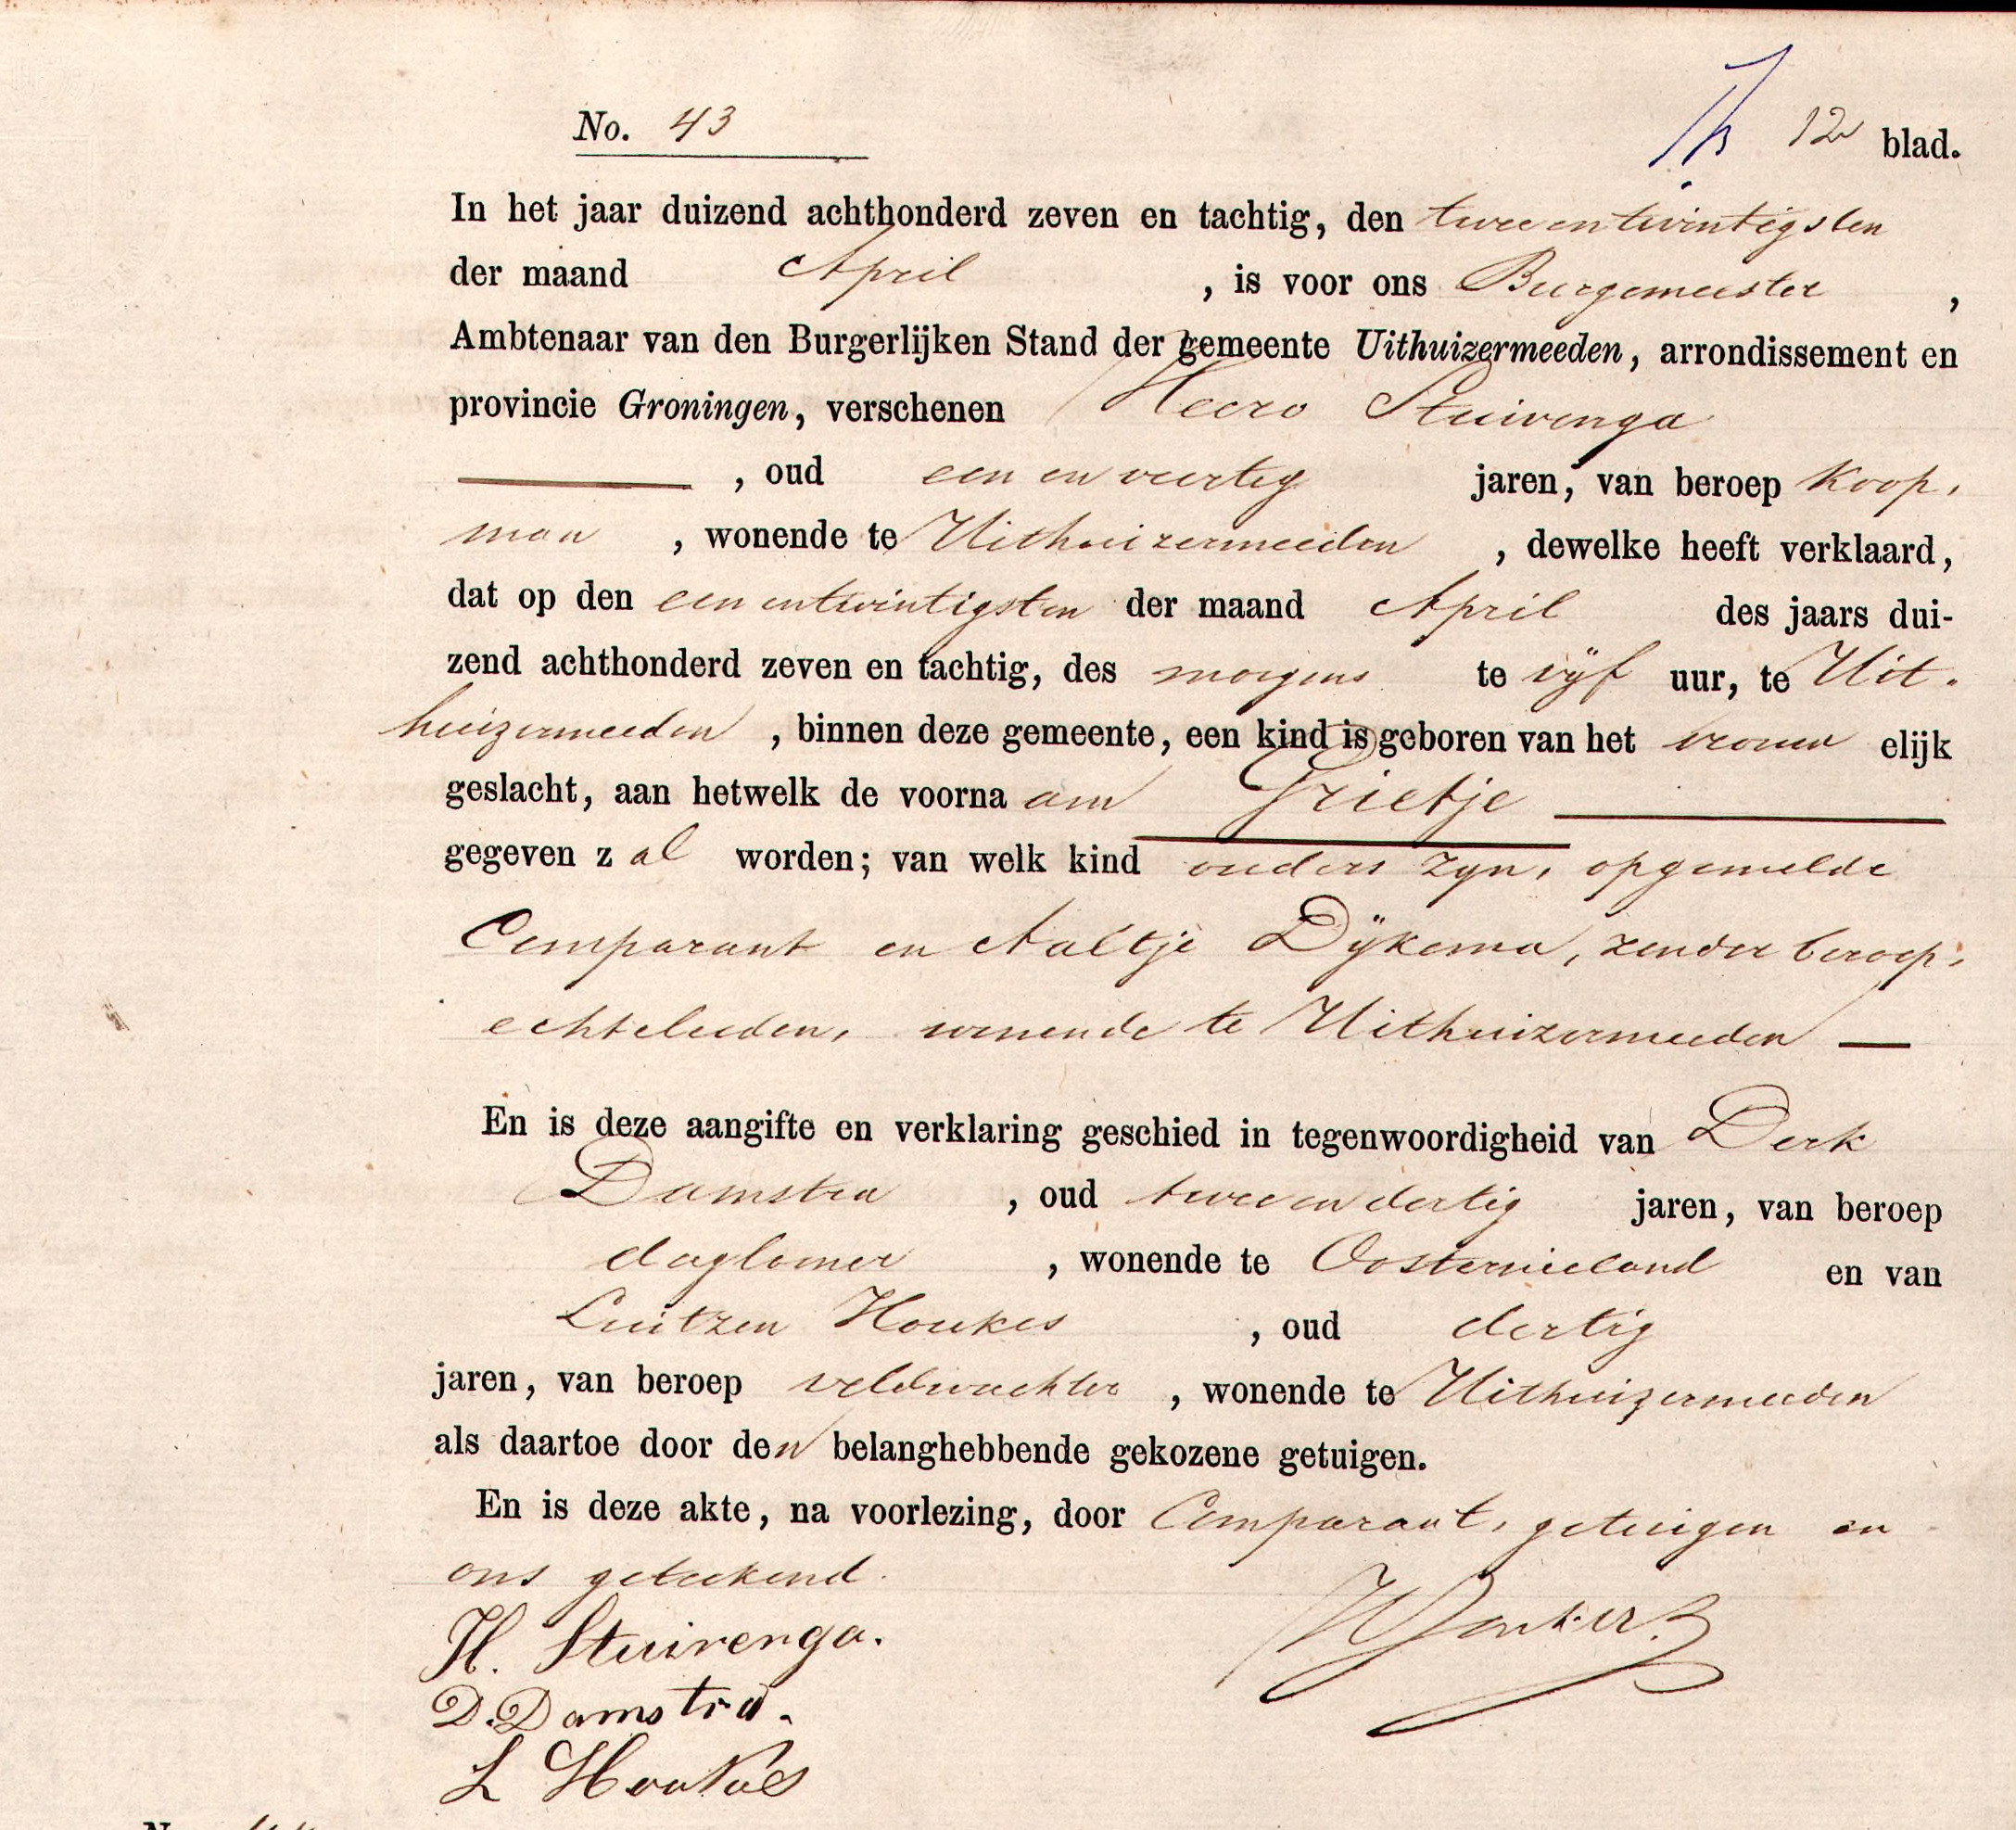 No. 43
12 blad.
In het jaar duizend achthonderd zeven en tachtig, den twee en twintigsten
der maand April , is voor ons Burgemeester ,
Ambtenaar van den Burgerlijken Stand der gemeente Uithuizermeeden, arrondissement en
provincie Groningen, verschenen Heero Stuivenga
, oud een en veertig jaren, van beroep Koop-
man , wonende te Uithuizermeeden , dewelke heeft verklaard,
dat op den een en twintigsten der maand April des jaars dui-
zend achthonderd zeven en tachtig, des morgens te vijf uur, te Uit-
huizermeeden , binnen deze gemeente, een kind is geboren van het vrouw elijk
geslacht, aan hetwelk de voorna am Grietje
gegeven z al worden; van welk kind ouders zijn, opgemelde
Comparant en Aaltje Dijkema, zonder beroep,
echtelieden, wonende te Uithuizermeeden
En is deze aangifte en verklaring geschied in tegenwoordigheid van Derk
Damstra , oud twee en dertig jaren, van beroep
dagloner , wonende te Oosternieland en van
Luitzen Houkes , oud dertig
jaren, van beroep veldwachter , wonende te Uithuizermeeden
als daartoe door den belanghebbende gekozene getuigen.
En is deze akte, na voorlezing, door Comparant, getuigen en
ons geteekend.
H. Stuivenga.
D. Damstra.
L Houkes